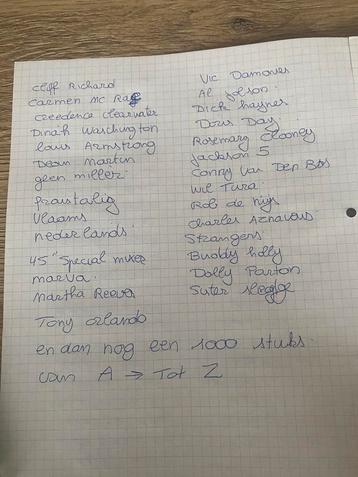 Cliff Richard
Carmen Mc Rae
Creedence clearwater
Dinah Waschington
Louis Armstrong
Dean Martin
geen miller
franstalig
Vlaams
nederlands
45" Special mixes
marva
Martha Reeves
Tony orlando
en dan nog een 1000 stuks.
van A → Tot Z
Vic Damoues
Al Jolson
Dick haynes
Doris Day
Rosemary Clooney
Jackson 5
Conny Van Den Bos
Wil Tura
Rob de nijs
Charles Aznavous
Strangers
Buddy holly
Dolly Parton
Suter sledge